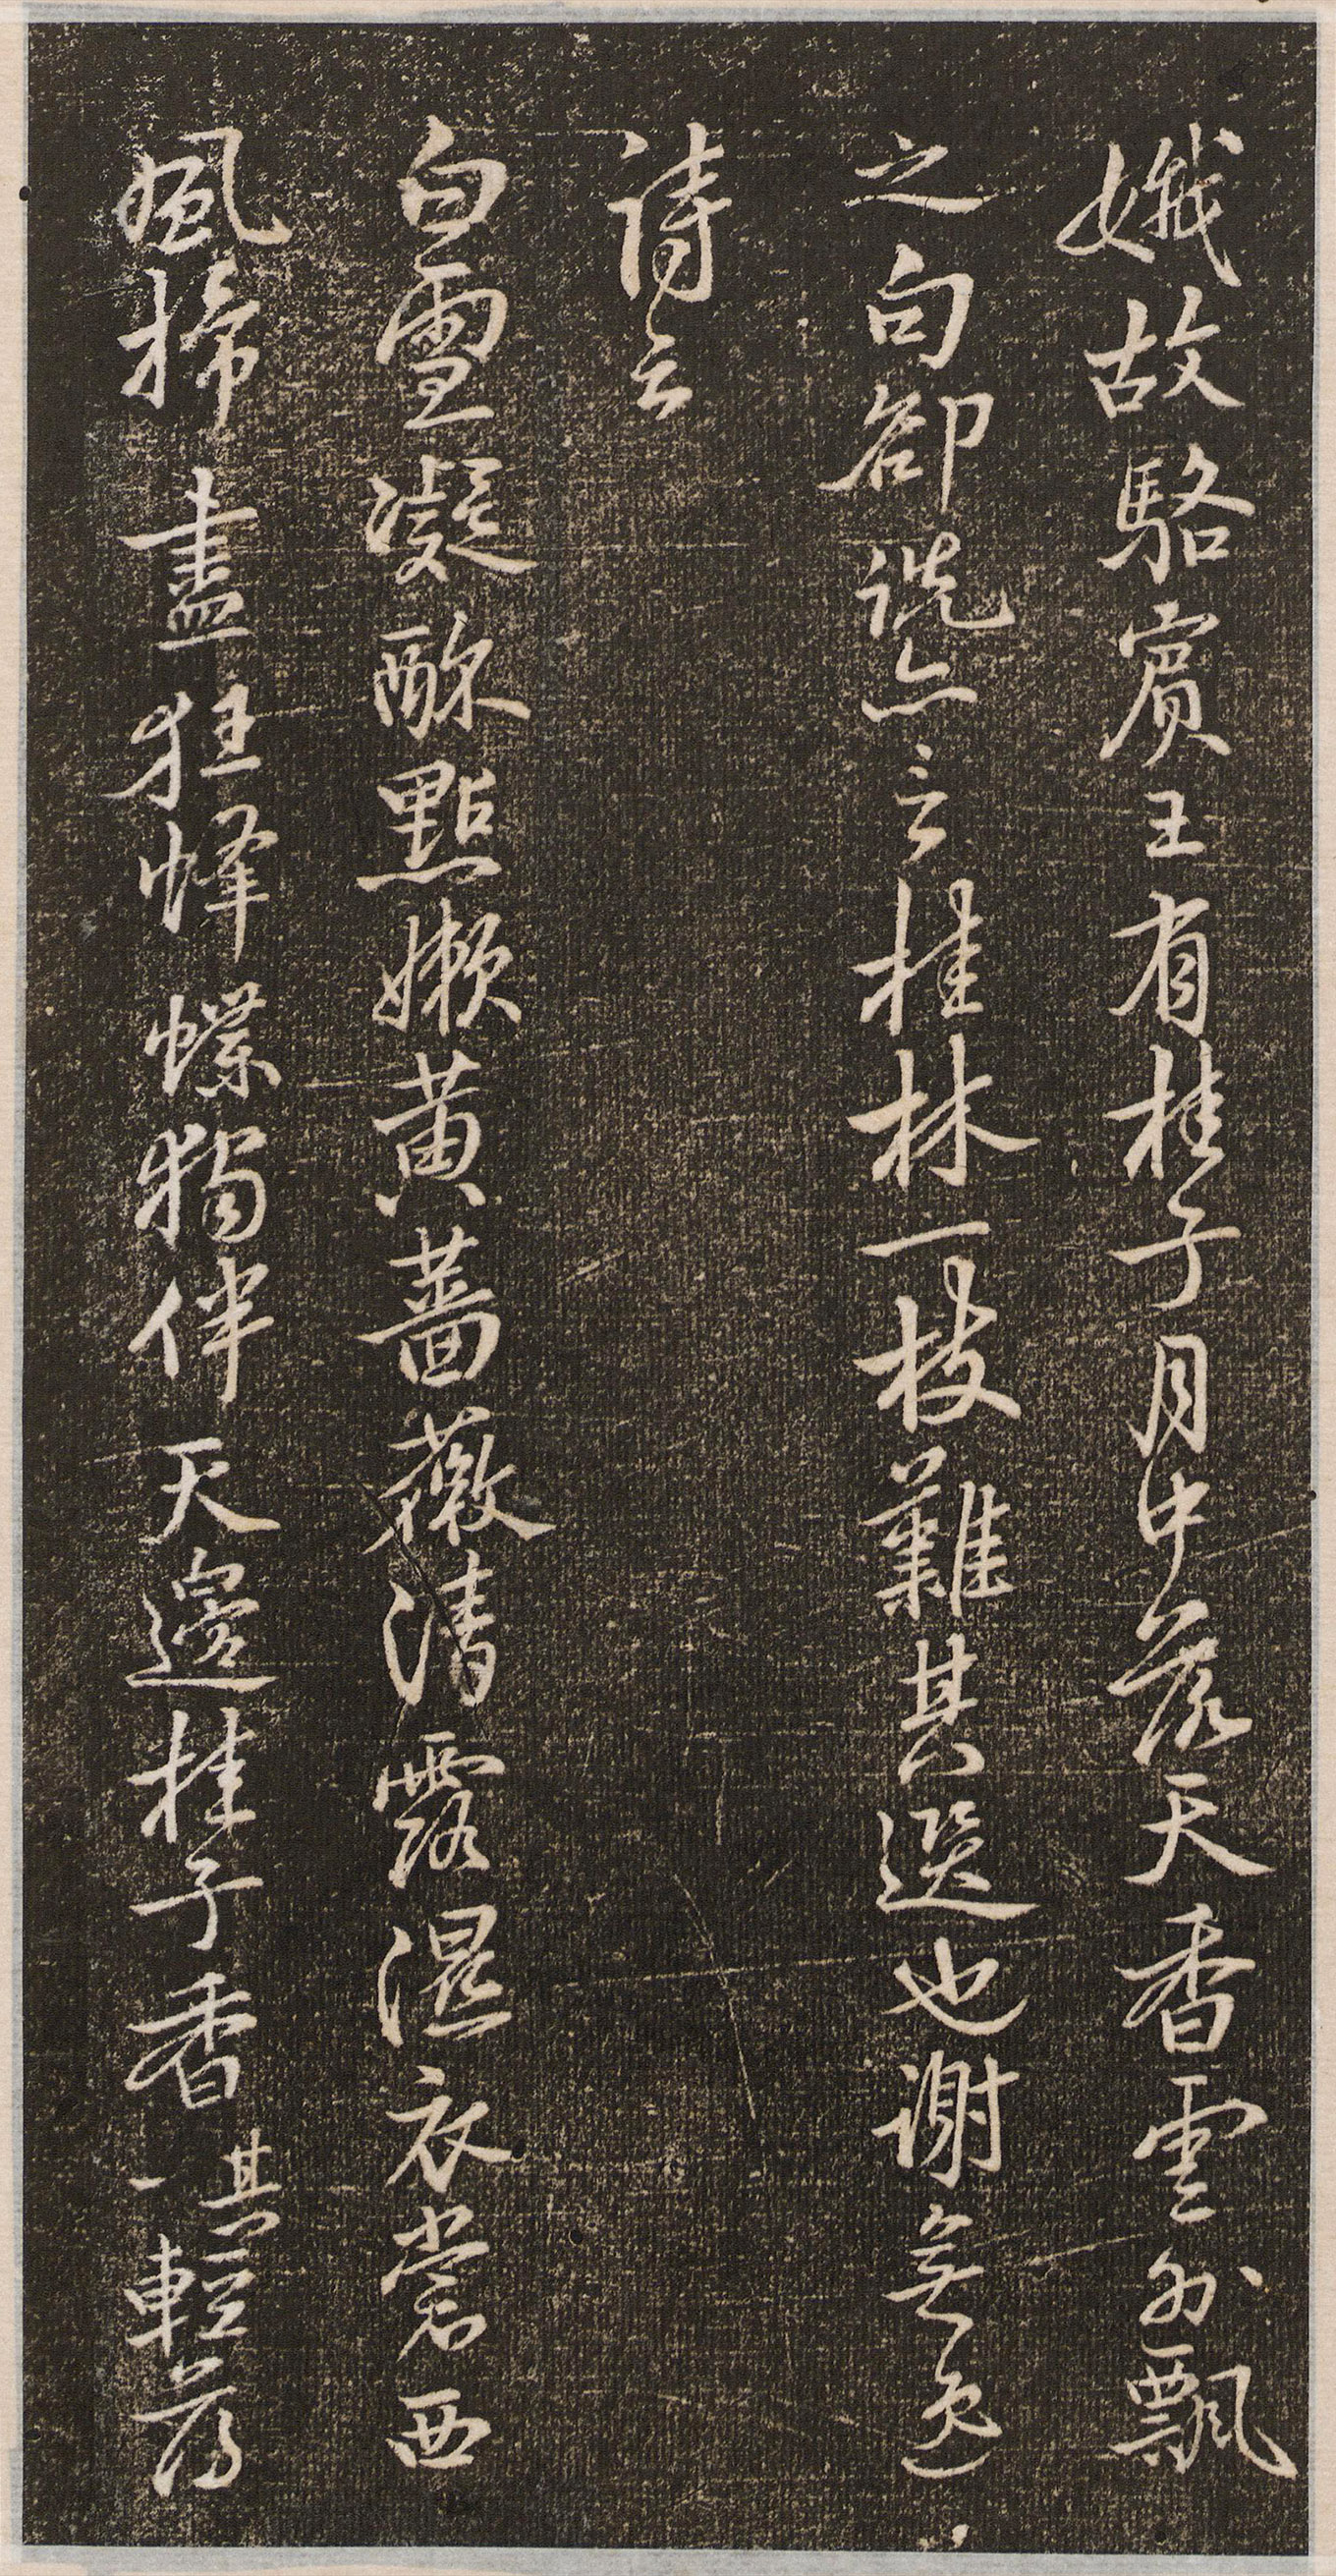 娥故駱賓王有桂子月中落天香雲外飄
之句卻詵亦言桂林一枝難其選也謝無逸
詩云
白雪凝酥點嫩黃薔薇清露濕衣裳西
風掃盡狂蜂蝶獨伴天邊桂子香其一輕薄